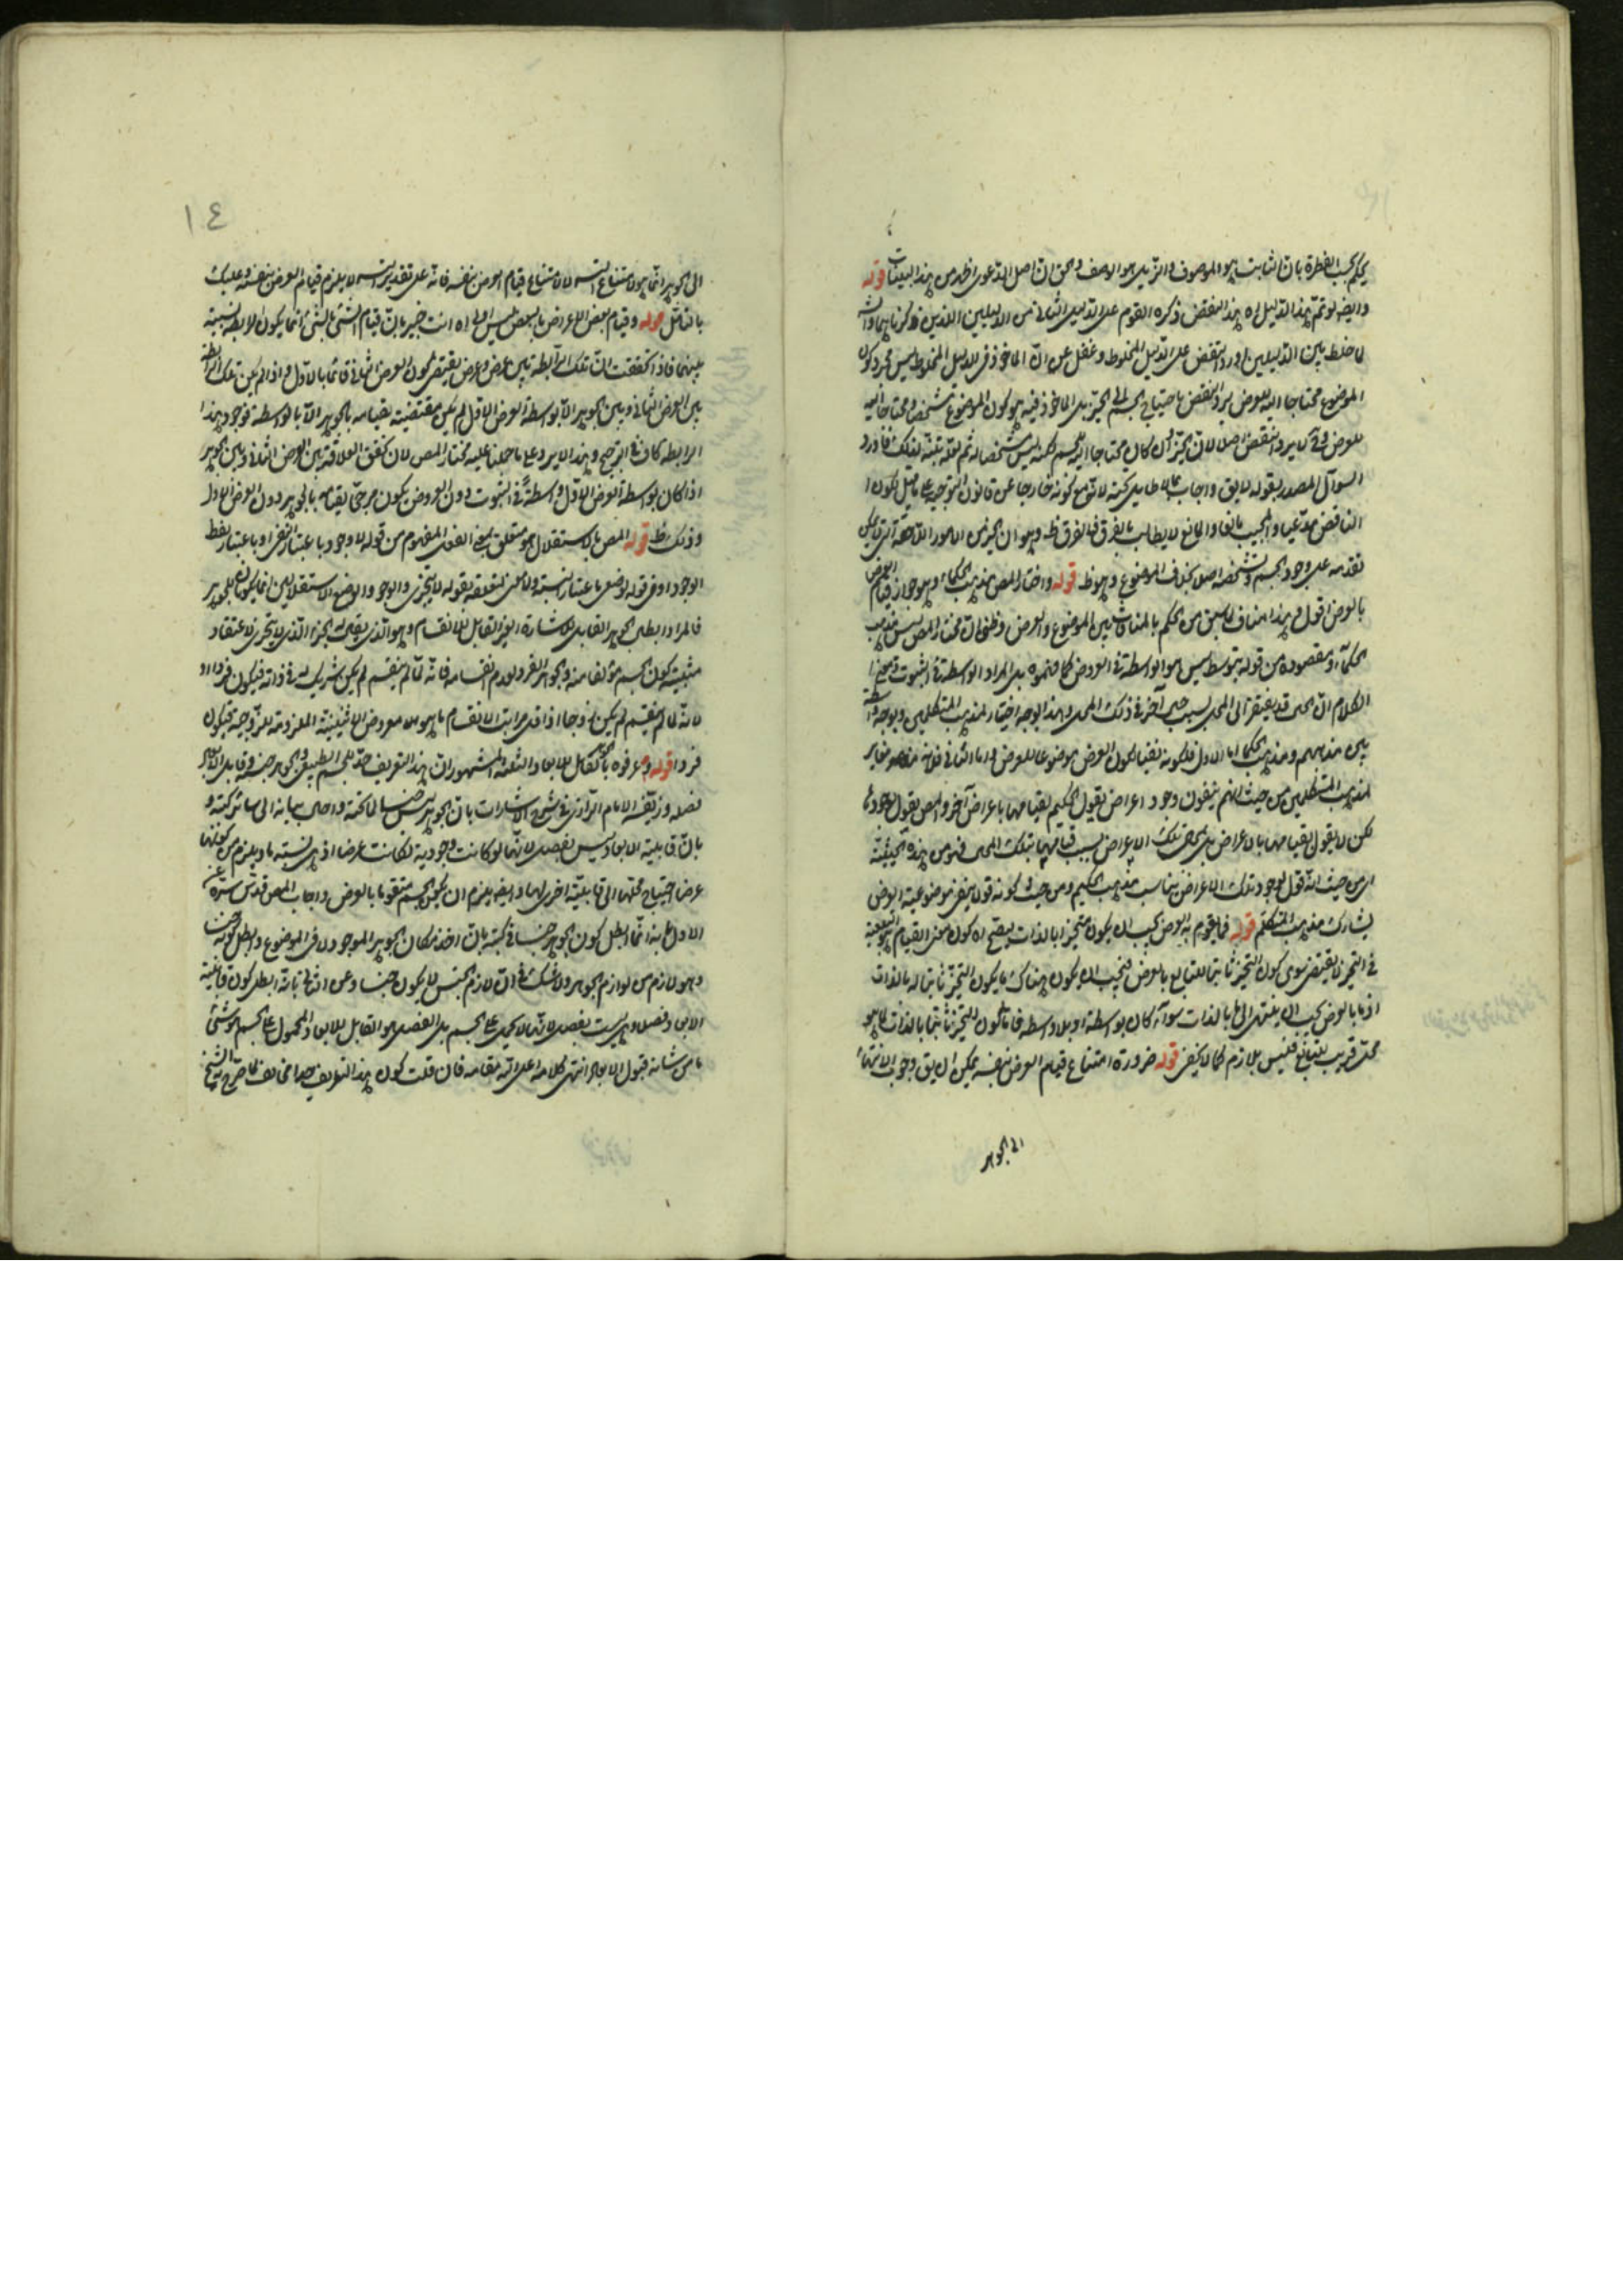 يحكم بحسب الفطرة بان الثابت هو الموصوف والزايل هو الوصف والحق ان اصل الدعوى اظهر من هذه البينات قوله
وايضا لو تم هذا الدليل اه هذا النقض ذكره القوم على الدليل الثانى من الدليلين اللذين ذكرناهما والش
لما خلط بين الدليلين اورد النقض على الدليل المخلوط وغفل عن ان الماخوذ فى الدليل المخلوط ليس مجرد كون
الموضوع محتاجا اليه للعرض ليرد النقض باحتياج الجسم الى الحيز بل الماخوذ فيه هو كون الموضوع مشخصا ومحتاجا اليه
للعرض وح لا يرد النقض اصلا لان الحيز وان كان محتاجا اليه للجسم لكنه ليس مشخصا له ثم لعله تنبه لذلك فاورد
السؤال المصدر بقوله لا يق واجاب بما لا طايل تحته لانه مع كونه خارجا عن قانون التوجيه
الناقض مدعيا والمجيب مانعا والمانع لا يطالب بالفرق فالفرق ظ وهو ان الحيز من الامور اللاحقة التى لا يمكن
تقدمه على وجود الجسم وتشخصه اصلا بخلاف الموضوع وهو ظ قوله واختار المص مذهب الحكماء وهو جواز قيام العرض
بالعرض اقول هذا مناف لما سبق من الحكم بالمنافاة بين الموضوع والعرض وظنى ان مختار المص ليس مذهب
الحكماء ومقصوده من قوله بتوسط ليس هو الواسطة فى العروض كما فهموه بل المراد الواسطة فى الثبوت
الكلام ان الحال قد يفتقر الى المحل بسبب حال آخر فى ذلك المحل وبهذا الوجه اختيار لمذهب المتكلمين وبوجه واسطة
بين مذهبهم ومذهب الحكماء اما الاول فلكونه نفيا لكون العرض موضوعا للعرض واما الثانى فلانه مغاير
لمذهب المتكلمين من حيث انهم ينفون وجود اعراض يقول الحكيم بقيامها باعراض آخر والمص يقول بوجودها
لكن لا يقول بقيامها بالاعراض بل بمحل تلك الاعراض بسبب قيامها بتلك المحل فهو من هذه الحيثية
اى من حيث انه قول بوجود تلك الاعراض يناسب مذهب الحكيم ومن حيث كونه قولا بنفى موضوعية العرض
يشارك مذهب المتكلم قوله فما يقوم به العرض يجب ان يكون متحيزا بالذات ليصح اه كون معنى القيام هو التبعية
فى التحيز لا يقتضى سوى كون التحيز ثابتا للتابع بالعرض فيجب ان يكون هناك ما يكون التحيز ثابتا له بالذات
اذ ما بالعرض يجب ان ينتهى الى ما بالذات سواء كان بواسطة او بلا واسطة فاما كون التحيز ثابتا بالذات لما هو
محل قريب للتابع فليس بلازم كما لا يخفى قوله ضرورة امتناع قيام العرض بنفسه يمكن ان يق وجوب الانتهاء
الى الجوهر
١٤
الى الجوهر انما هو لامتناع التس لا لامتناع قيام العرض بنفسه فانه على تقدير التس لا يلزم قيام العرض بنفسه وعليك
بالتامل قوله وقيام بعض الاعراض بالبعض ليس اولى اه انت خبير بان قيام الشئ بالشئ انما يكون لرابطة نسبية
بينهما فاذا تحققت تلك الرابطة بين عرض وعرض يقتضى كون العرض الثانى قائما بالاول واذا لم يكن تلك الرابطة
بين العرض الثانى وبين الجوهر الا بواسطة العرض الاول لم يكن مقتضية لقيامه بالجوهر الا بالواسطة فوجود هذا
الرابطة كاف فى الترجيح وهذا لا يرد على ما حملنا عليه مختار المص لان تحقق العلاقة بين العرض الثانى وبين الجوهر
اذا كان بواسطة العرض الاول واسطة فى الثبوت دون العروض يكون مرجحا لقيامه بالجوهر دون العرض الاول
وذلك ظ قوله المص بالاستقلال هو متعلق بمعنى الفعل المفهوم من قوله لا وجود باعتبار النفى او باعتبار لفظ
الوجود او فى قوله لوضعى باعتبار النسبة
فالمراد ابطال الجوهر القابل للاشارة الغير القابل للانقسام وهو الذى يقال له الجزء الذى لا يتجزى لاعتقاد
مثبتيه كون الجسم مؤلفا منه والجوهر الفرد لعدم انقسامه فانه لما لم ينقسم لم يكن شريك له فى ذاته فيكون فردا او
لانه لما لم ينقسم لم يكن زوجا اذ اقل مراتب الانقسام ما هو معروض الاثنينية الملزومة للزوجية فيكون
فردا قوله وعرفوه بالجوهر القابل للابعاد الثلثة المشهور ان هذا التعريف حد للجسم الطبيعى والجوهر جنسه وقابل الابعاد
فصله وزيفه الامام الرازى فى شرح الاشارات بان الجوهر ليس جنسا لما تحته واحال بيانه الى سائر كتبه و
بان قابلية الابعاد ليس بفصل لانها لو كانت وجودية لكانت عرضا اذ هى نسبة ما ويلزم من كونها
عرضا احتياج محلها الى قابلية اخرى لها وايضا يلزم ان يكون الجسم متقوما بالعرض واجاب المص قدس سره عن
الاول بانه انما ابطل كون الجوهر جنسا فى كتبه بان اخذ مكان الجوهر الموجود لا فى الموضوع وابطل كونه جنسا
وهو لازم من لوازم الجوهر ولا شك فى ان لازم الجنس لا يكون جنسا وعن الثانى بانه ابطل كون قابلية
الابعاد فصلا وهى ليست بفصل لانها لا تحمل على الجسم بل الفصل هو القابل للابعاد المحمول على الجسم هو شئ
ما من شانه قبول الابعاد انتهى كلامه اعلى الله مقامه فان قلت كون هذا التعريف حدا مخالف لما صرح به الشيخ